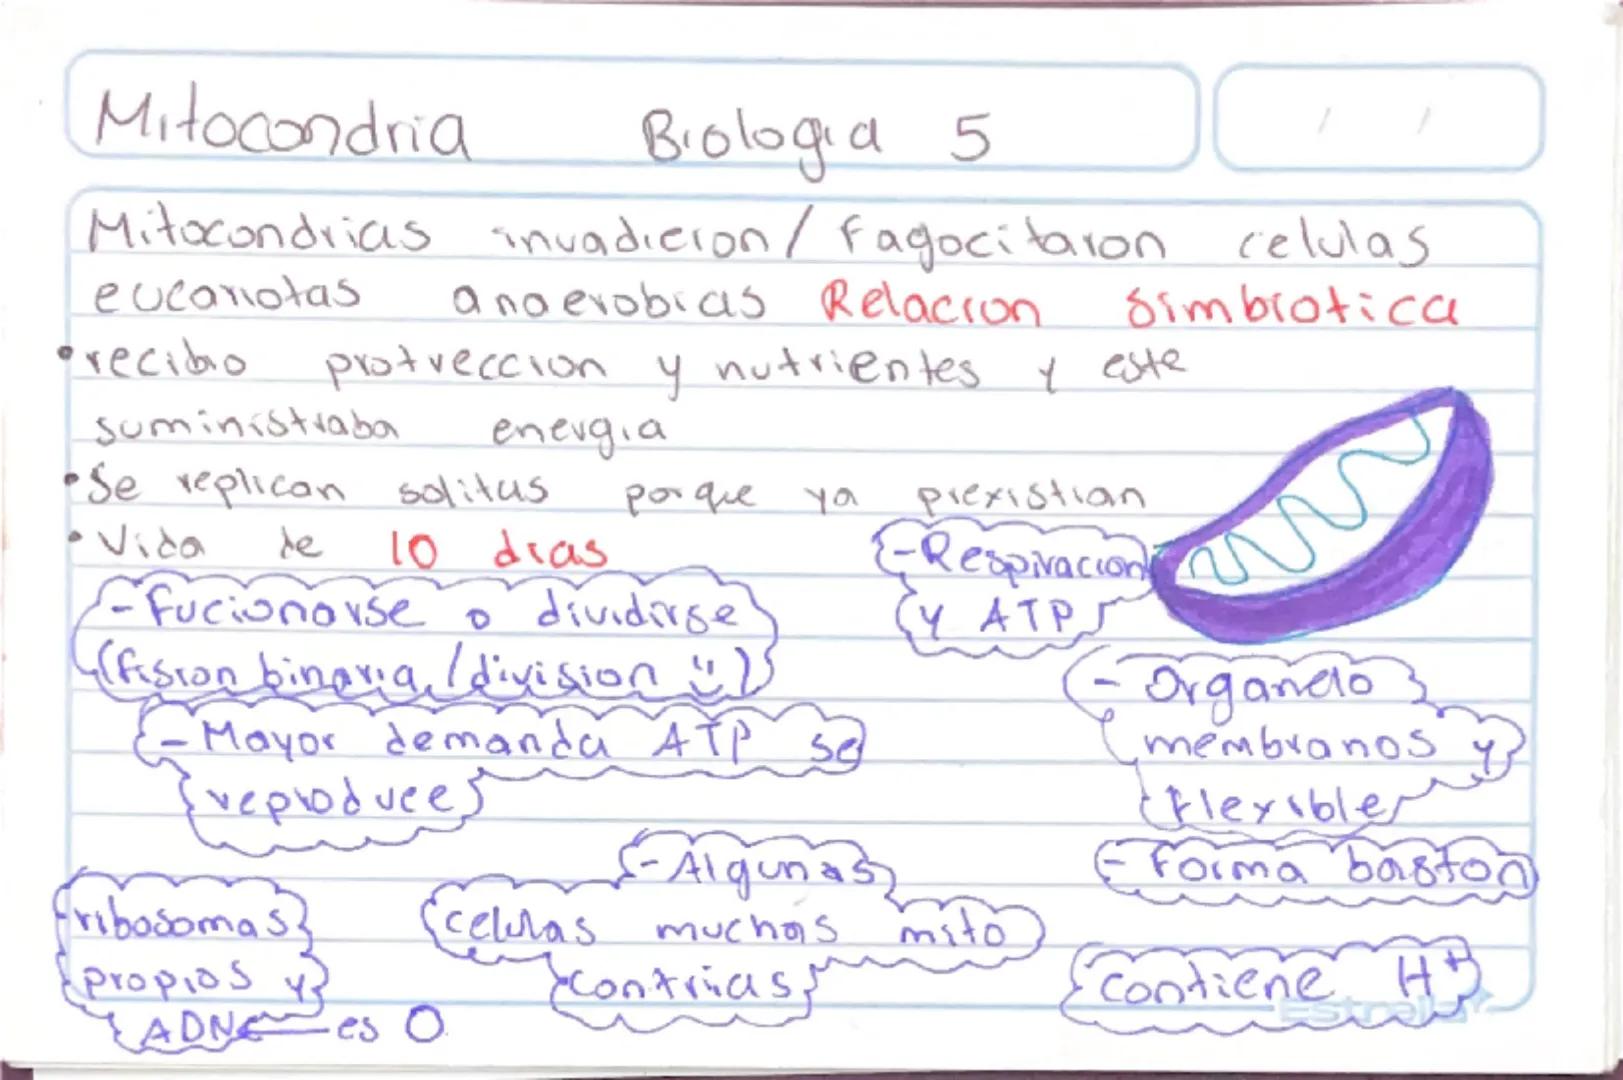 Mitocondria Biologia 5
/ /
Mitocondrias invadieron / fagocitaron celulas
eucariotas anaerobias Relacion simbiotica
• recibio protreccion y nutrientes y este
suministraba energia
• Se replican solitas porque ya prexistian
• Vida de 10 dias
- Respiracion
y ATP
- Fucionarse o dividirse
(fision binaria / division ü)
- Mayor demanda ATP se
reproduce
- Organelo
membranos y
flexible
- Forma baston
- Algunas
celulas muchas mito
contrias
- ribosomas
propios y
ADN es O
contiene H+
Estrella